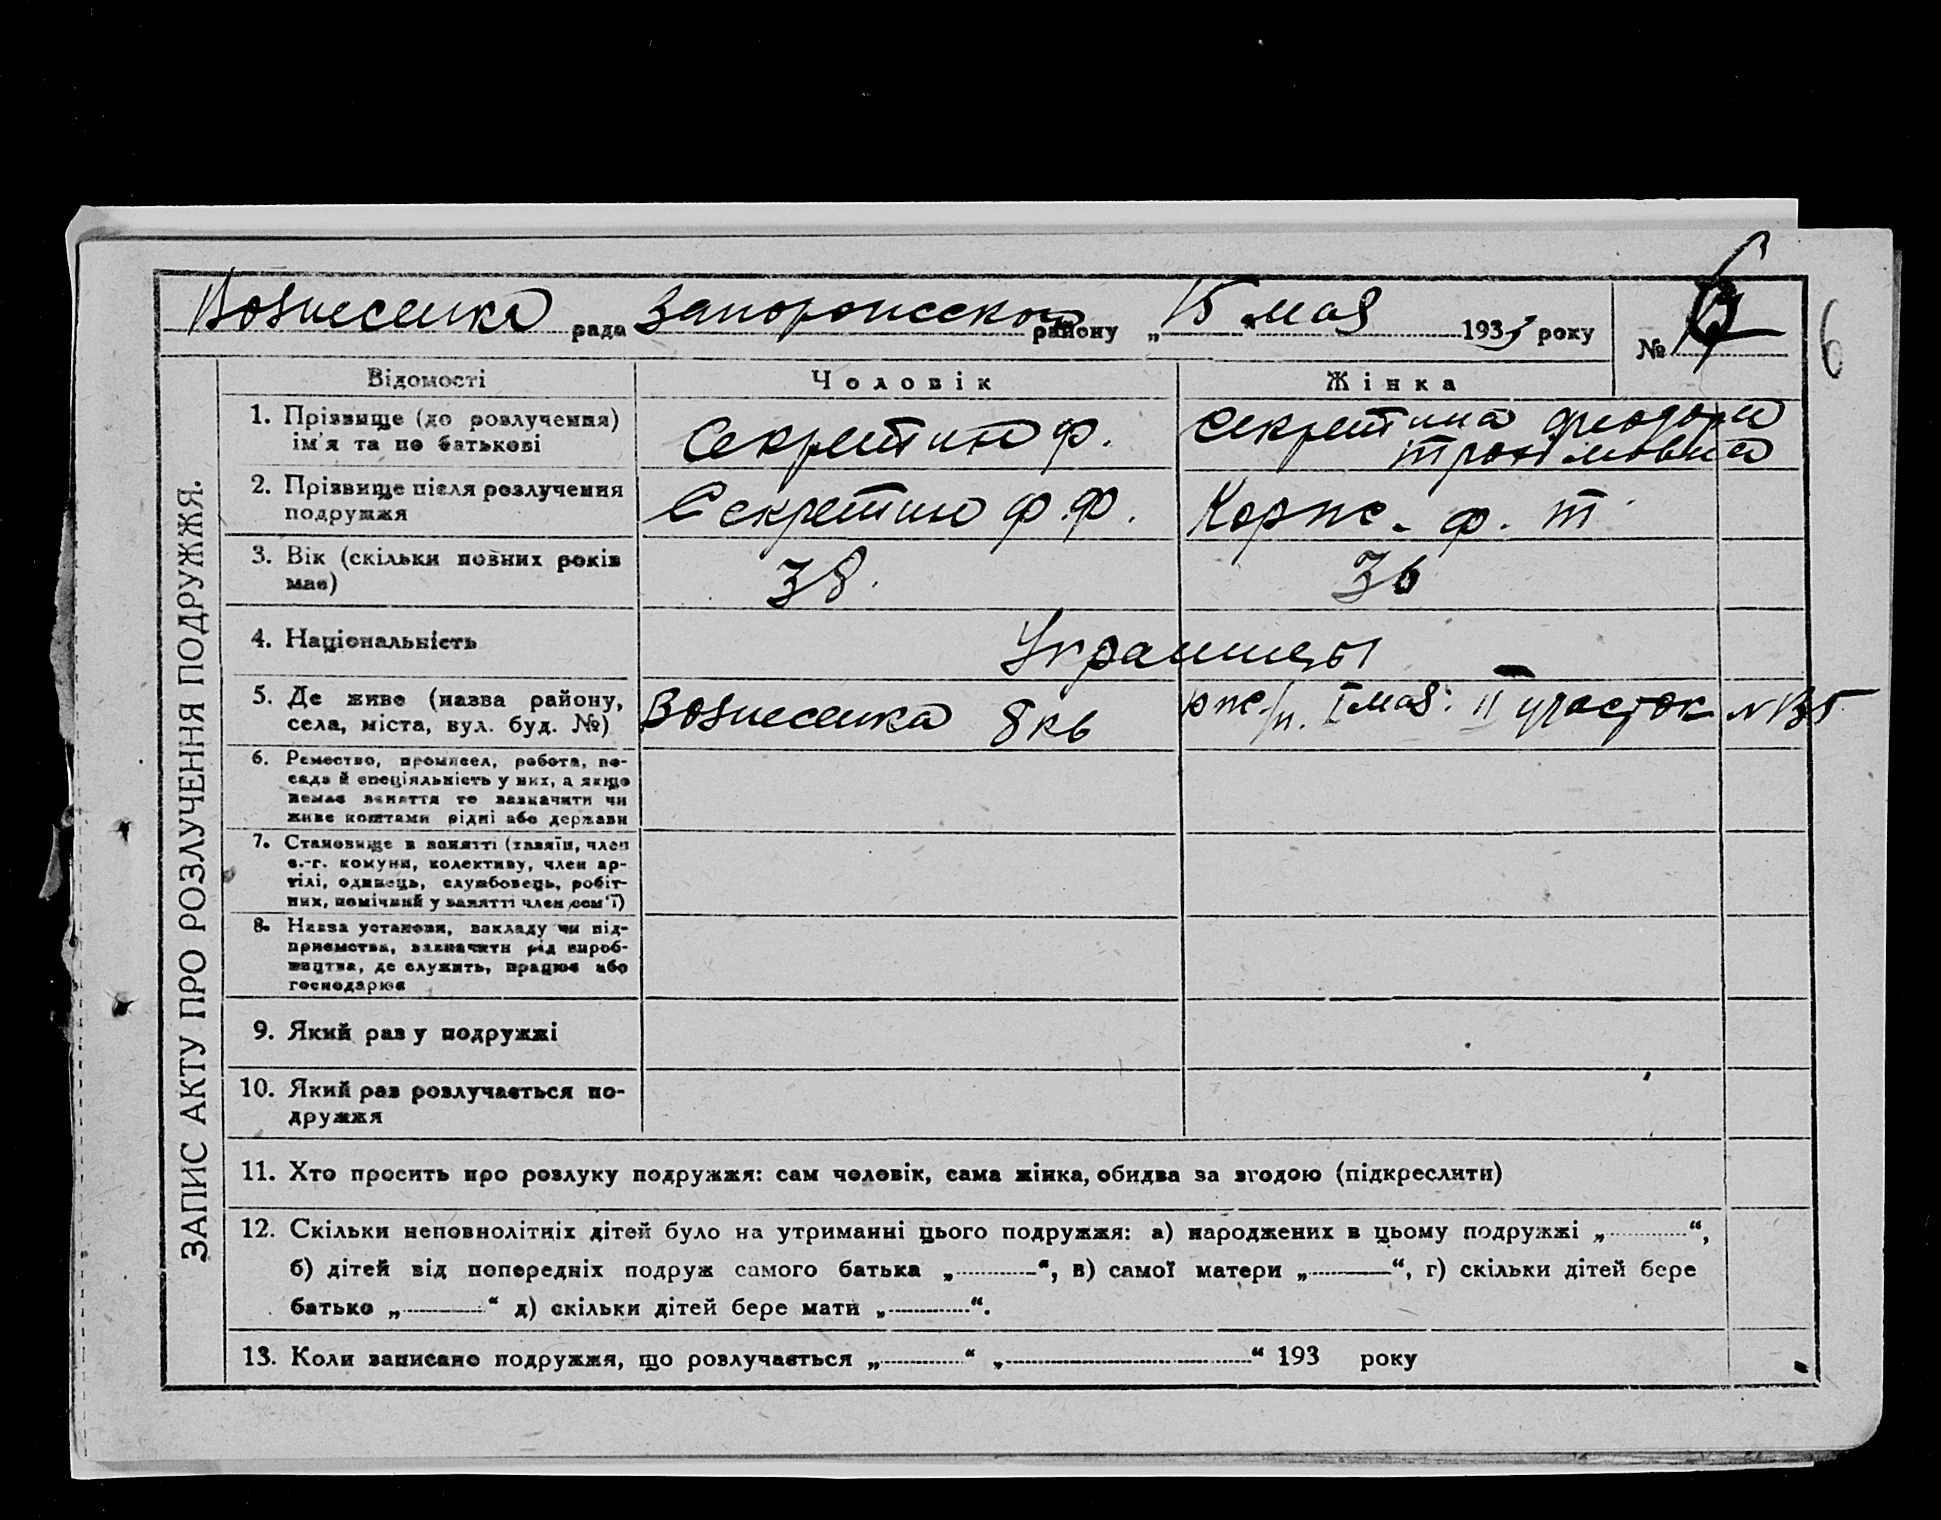 Вознесенка рада Запорожской району „15“ мая 1933 року № 6
6
ЗАПИС АКТУ ПРО РОЗЛУЧЕННЯ ПОДРУЖЖЯ.
Відомості Чоловік Жінка
1. Прізвище (до розлучення) ім'я та по батькові
Секретин ф.
Секретина феодора
трохимовна
2. Прізвище після розлучення подружжя
Секретин ф.ф.
Корж. ф. т
3. Вік (скільки повних років має)
38.
36
4. Національність
Украинцы
5. Де живе (назва району, села, міста, вул. буд. №)
Вознесенка 8 кв
I мая: II участок
6. Ремество, промисел, робота, по-
сада й спеціяльність у них, а якщо
немає заняття то зазначити чи
живе коштами рідні або держави
7. Становище в занятті (хазяїн, член
с.-г. комуни, колективу, член ар-
тілі, одинець, службовець, робіт-
ник, помічний у занятті член сем'ї)
8. Назва установи, закладу чи під-
приємства, зазначити рід вироб-
ництва, де служить, працює або
господарює
9. Який раз у подружжі
10. Який раз розлучається по-
дружжя
11. Хто просить про розлуку подружжя: сам чоловік, сама жінка, обидва за згодою (підкреслити)
12. Скільки неповнолітніх дітей було на утриманні цього подружжя: а) народжених в цьому подружжі „ “,
б) дітей від попередніх подруж самого батька „ “, в) самої матери „ “, г) скільки дітей бере
батько „ “ д) скільки дітей бере мати „ “.
13. Коли записано подружжя, що розлучається „ “ „ “ 193 року